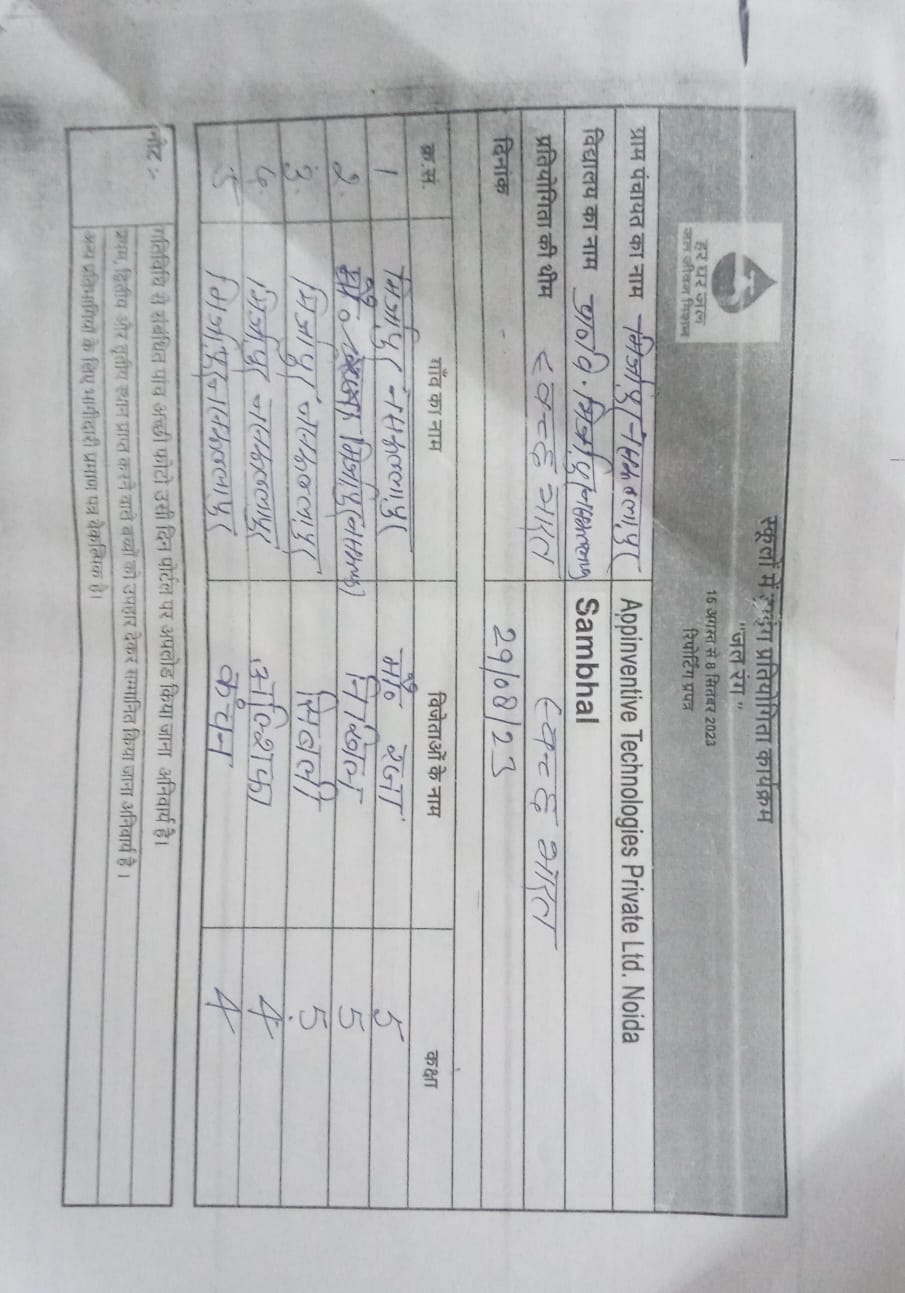 स्कूलों में ड्राइंग प्रतियोगिता कार्यक्रम
"जल रंग"
16 अगस्त से 8 सितंबर 2023
रिपोर्टिंग प्रपत्र
हर घर जल
जल जीवन मिशन
ग्राम पंचायत का नाम मिर्जापुर नसरुल्लापुर Appinventive Technologies Private Ltd. Noida
विद्यालय का नाम प्रा०वि० मिर्जापुर Sambhal
प्रतियोगिता की थीम स्वच्छ भारत स्वच्छ भारत
दिनांक 29/08/23
क्र.सं. गाँव का नाम विजेताओं के नाम कक्षा
1 मिर्जापुर नसरुल्लापुर मौ० रजा 5
2. मिर्जापुर 5
3. मिर्जापुर नसरुल्लापुर सिवली 5
4. मिर्जापुर नसरुल्लापुर 4
5 मिर्जापुर नसरुल्लापुर कंचन 4
नोट :- गतिविधि से संबंधित पांच अच्छी फोटो उसी दिन पोर्टल पर अपलोड किया जाना अनिवार्य है।
प्रथम, द्वितीय और तृतीय स्थान प्राप्त करने वाले बच्चों को उपहार देकर सम्मानित किया जाना अनिवार्य है।
अन्य प्रतिभागियों के लिए भागीदारी प्रमाण पत्र वैकल्पिक है।